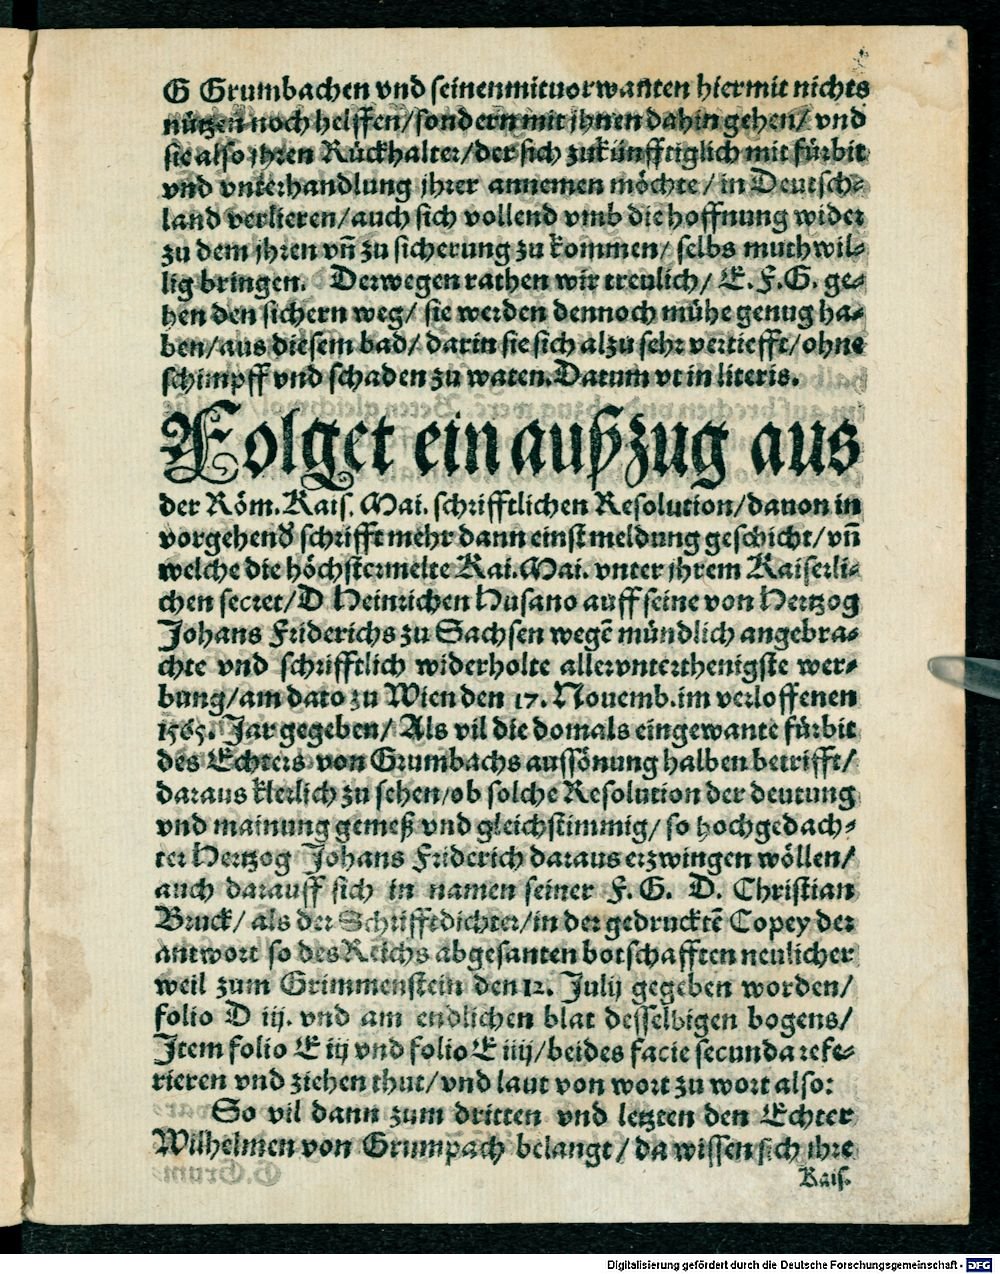 G Grumbachen vnd seinenmituorwanten hiermit nichts
nützen noch helffen/sondern mit jhnen dahin gehen/ vnd
sie also jhren Rückhalter/der sich zukünfftiglich mit fürbit
vnd vnterhandlung jhrer annemen möchte/in Deutsch-
land verlieren/auch sich vollend vmb die hoffnung wider
zu dem jhren vn̄ zu sicherung zu kommen/ selbs muthwil-
lig bringen. Derwegen rathen wir treulich/ E. F. G. ge-
hen den sichern weg/ sie werden dennoch mühe genug ha-
ben/aus diesem bad/ darin sie sich alzu sehr vertiefft/ohne
schimpff vnd schaden zu waten.Datum vt in literis.
Folget ein außzug aus
der Röm.Kais. Mai. schrifftlichen Resolution/dauon in
vorgehend schrifft mehr dann einst meldung geschicht/vn̄
welche die höchstermelte Kai.Mai. vnter jhrem Kaiserli-
chen secret/D Heinrichen Husano auff seine von Hertzog
Johans Friderichs zu Sachsen wegē mündlich angebra-
chte vnd schrifftlich widerholte allervnterthenigste wer-
bung/am dato zu Wien den 17. Nouemb.im verloffenen
1565. Jar gegeben/ Als vil die domals eingewante fürbit
des Echters von Grumbachs aussönung halben betrifft/
daraus klerlich zu sehen/ob solche Resolution der deutung
vnd mainung gemeß vnd gleichstimmig/ so hochgedach-
ter Hertzog Johans Friderich daraus erzwingen wöllen/
auch darauff sich in namen seiner F. G. D. Christian
Bruck/ als der Schrifftdichter/in der gedrucktē Copey der
antwort so des Reichs abgesanten botschafften neulicher
weil zum Grimmenstein den 12. Julij gegeben worden/
folio D iij. vnd am endlichen blat desselbigen bogens/
Item folio E iij vnd folio E iiij/beides facie secunda refe-
rieren vnd ziehen thut/vnd laut von wort zu wort also:
So vil dann zum dritten vnd letzten den Echter
Wilhelmen von Grumpach belangt/da wissen sich ihre
Kais.
Digitalisierung gefördert durch die Deutsche Forschungsgemeinschaft - DFG